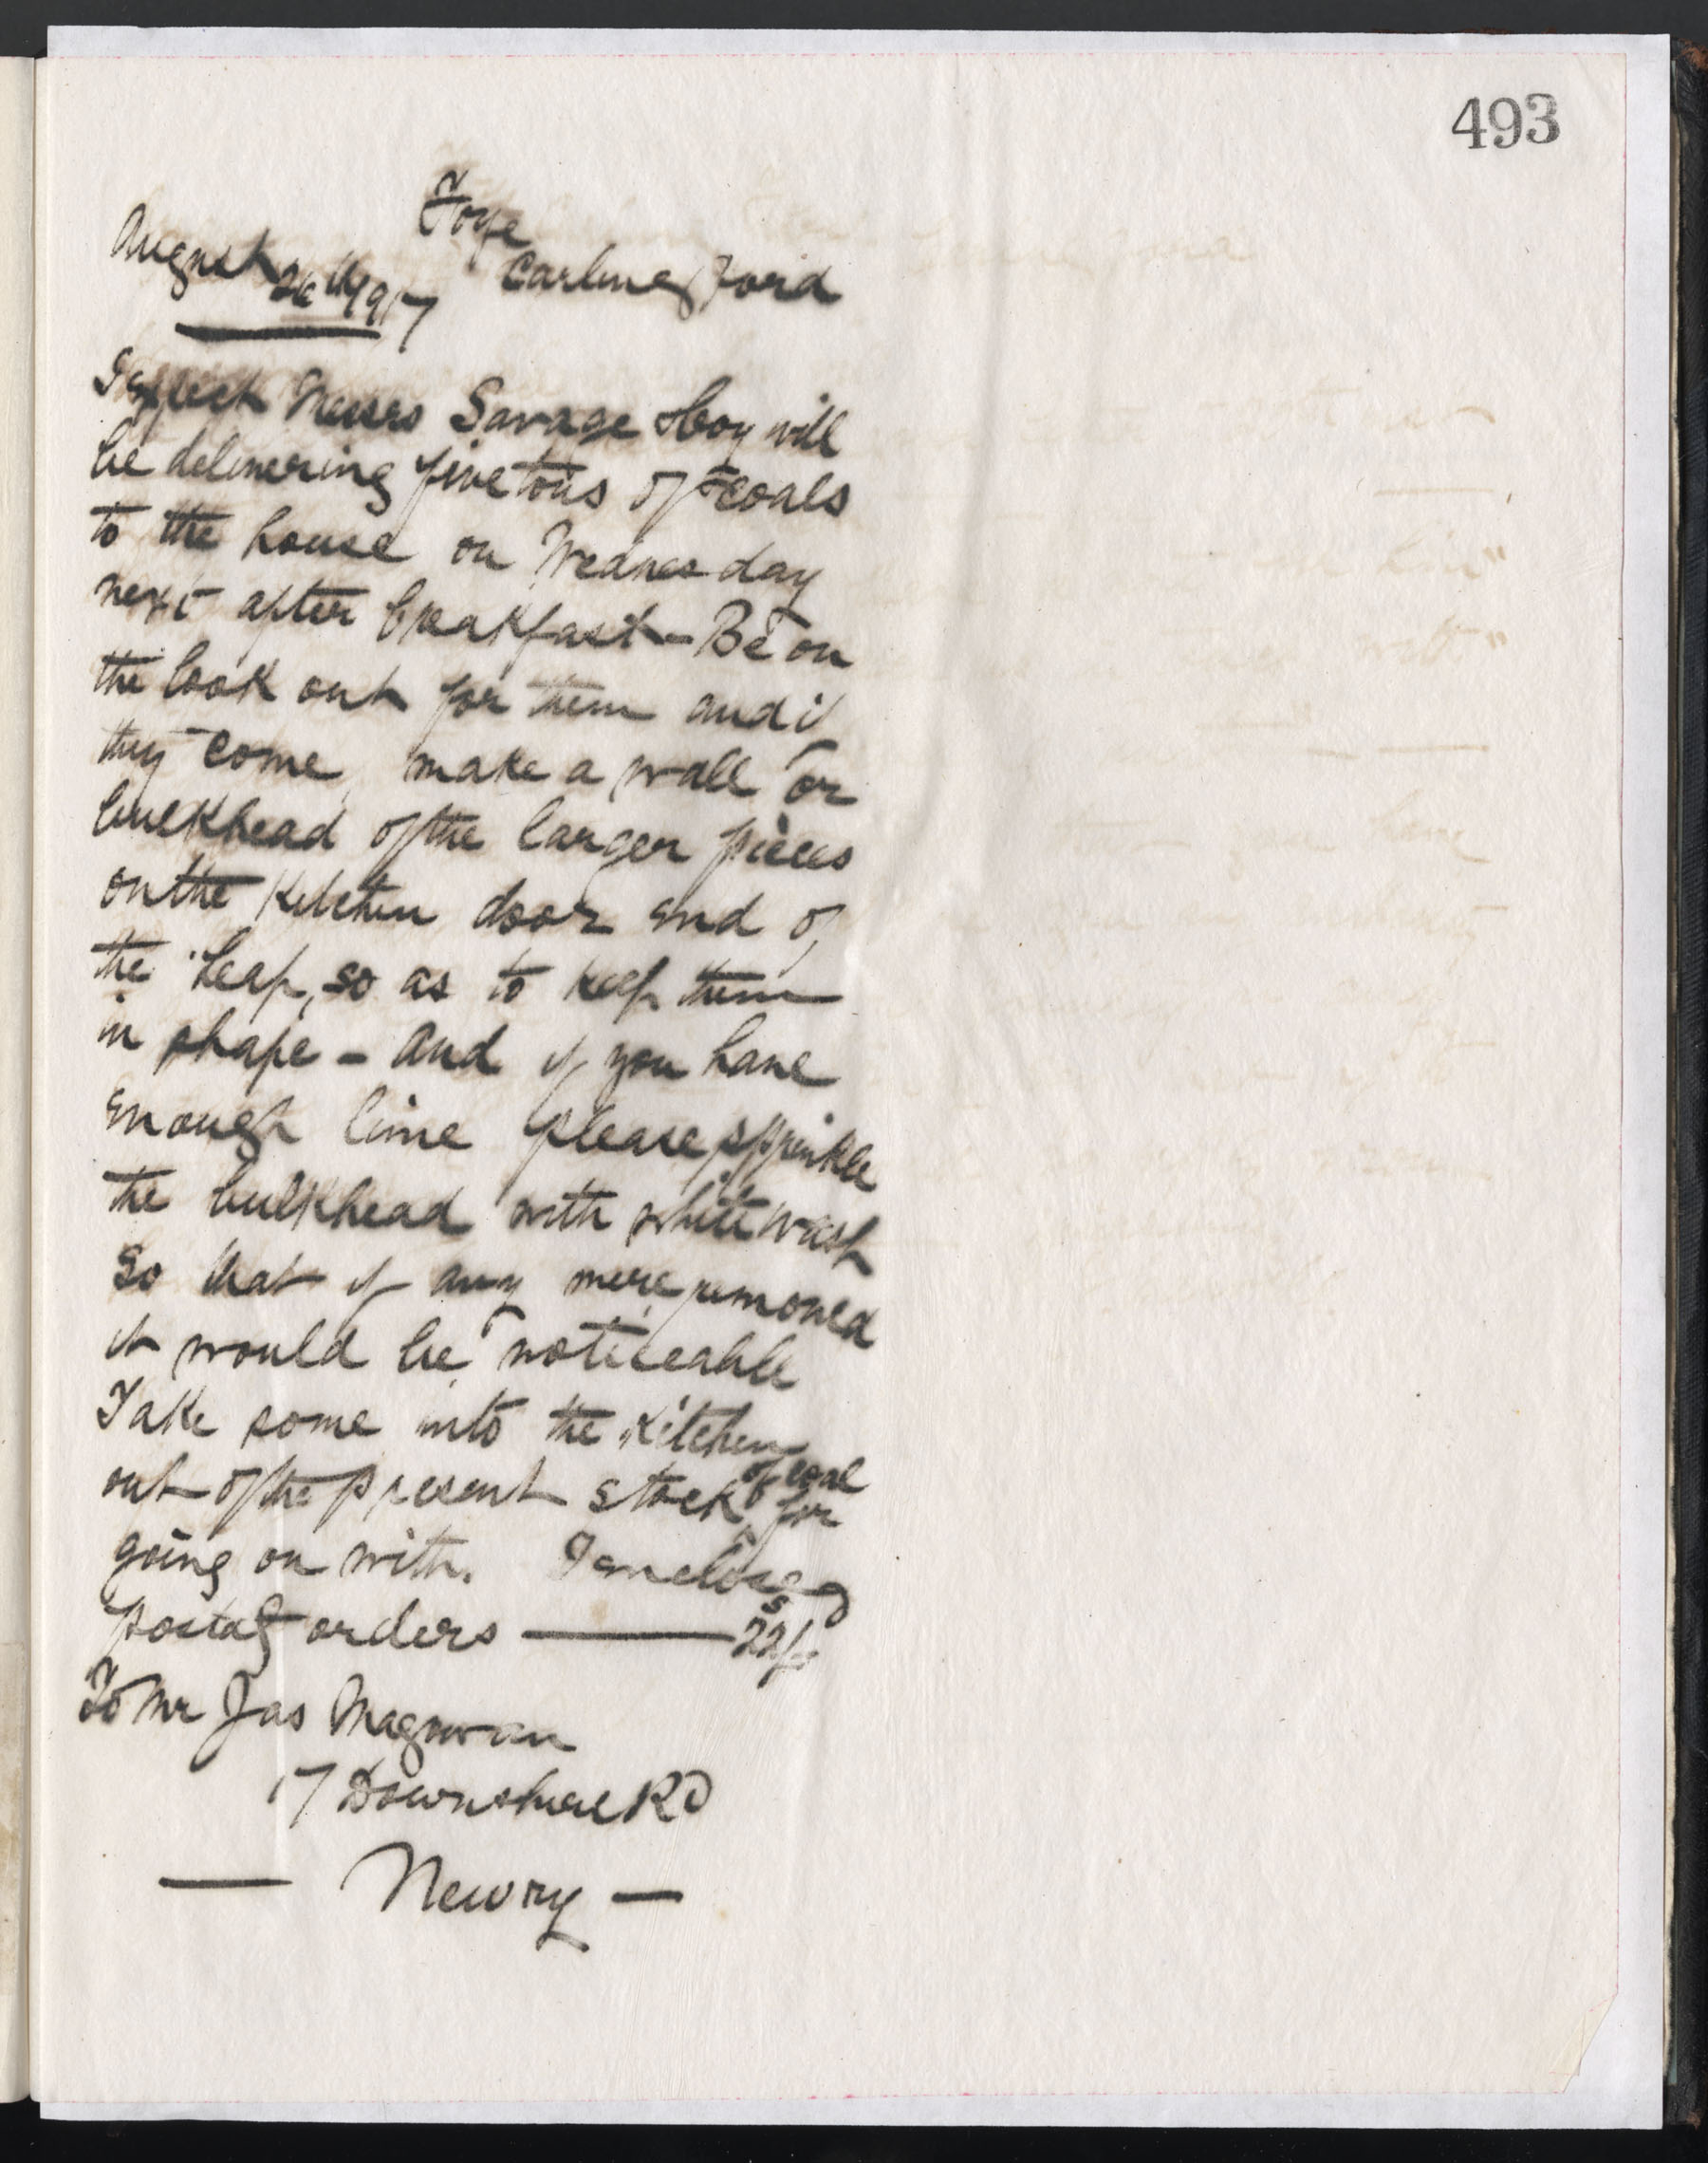 493
Foye
Carlingford
August 26th 1917
I expect Messrs Savage & Coy will
be delivering five tons of coals
to the house on Wednesday
next after breakfast - Be on
the look out for them and if
they come, make a wall or
bulkhead of the larger pieces
on the Kitchen door end of
the heap, so as to keep them
in shape - and if you have
enough lime please sprinkle
the bulkhead with white wash
so that if any were removed
it would be noticeable
Take some into the Kitchen
out of the present stock of coal for
going on with. I enclose
postal orders — 22/s
To Mr Jas Magowan
17 Downshire Rd
— Newry —